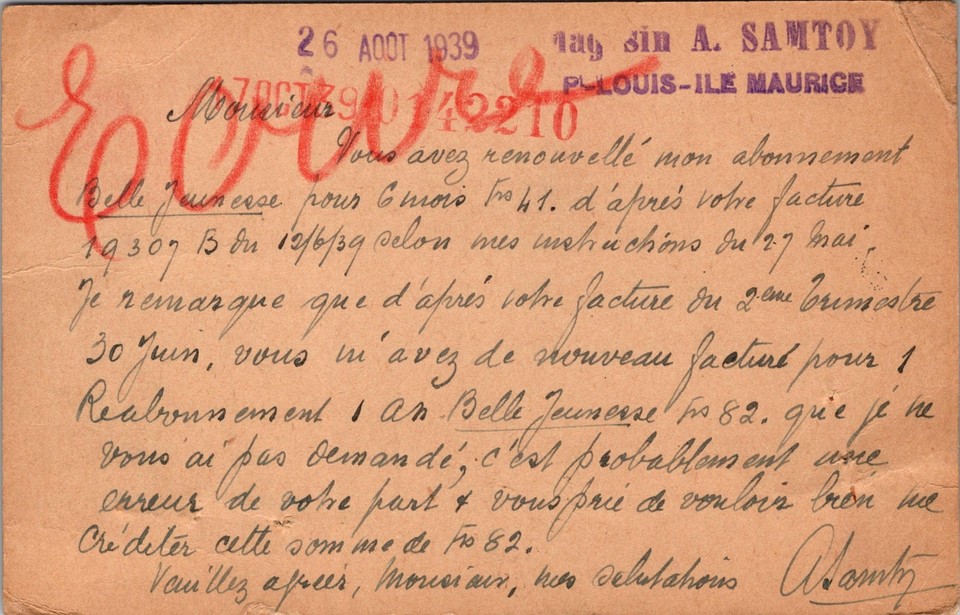 26 AOUT 1939
Magasin A. SAMTOY
P-LOUIS-ILE MAURICE
7 OCT 39 0142210
Monsieur
Vous avez renouvellé mon abonnement
Belle Jeunesse pour 6 mois Frs 41. d'après votre facture
19307 B du 12/6/39 selon mes instructions du 27 Mai.
Je remarque que d'après votre facture du 2eme Trimestre
30 Juin, vous m'avez de nouveau facturé pour 1
Reabonnement 1 an Belle Jeunesse Frs 82. que je ne
vous ai pas demandé, c'est probablement une
erreur de votre part & vous prie de vouloir bien me
Créditer cette somme de Frs 82.
Veuillez agréer, Monsieur, mes salutations
ASamtoy